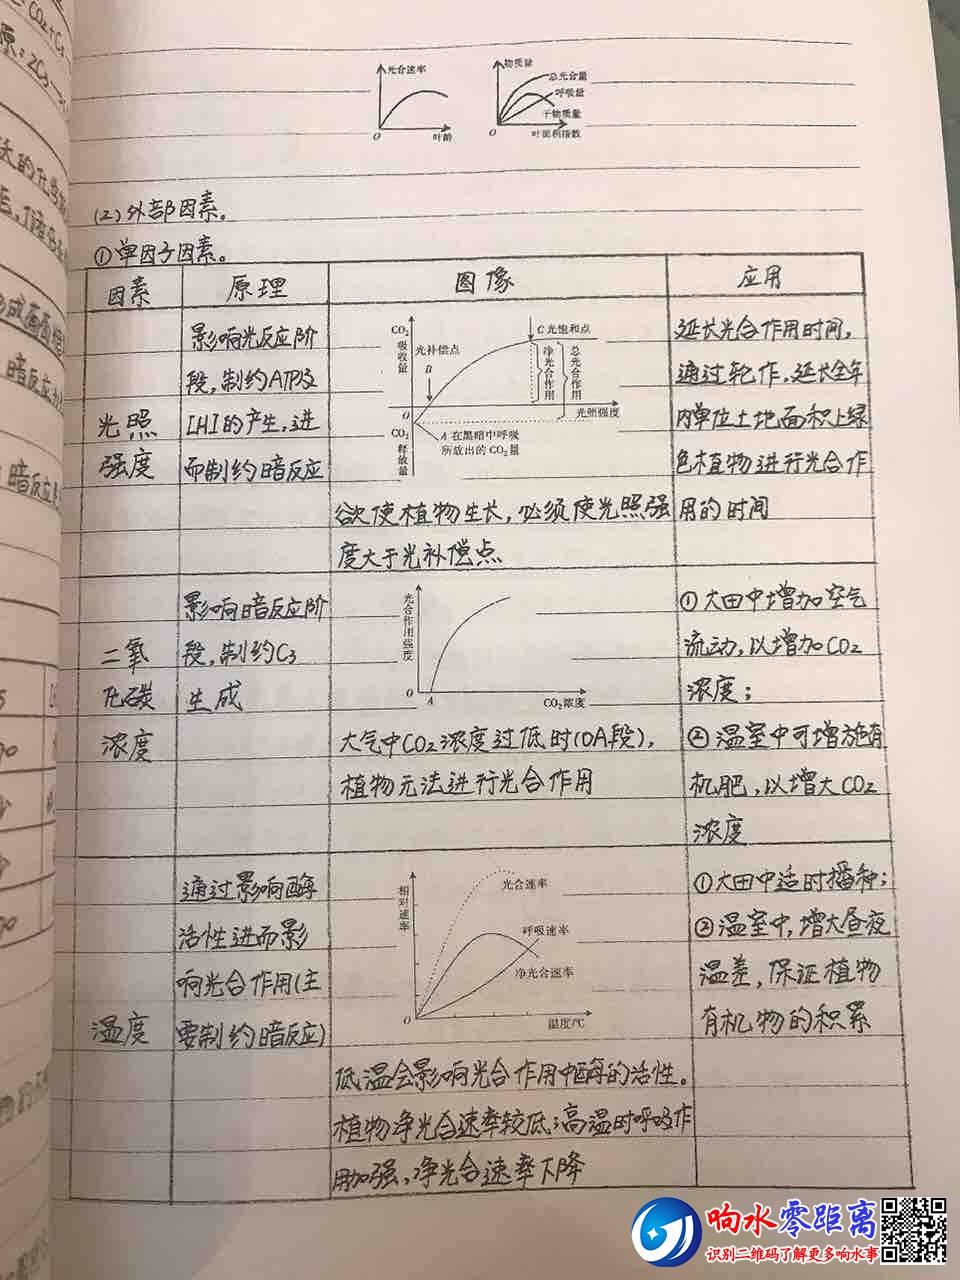 光合速率
O
叶龄
物质量
总光合量
呼吸量
干物质量
O
叶面积指数
(2)外部因素。
①单因子因素。
因素
原理
图像
应用
光照
强度
影响光反应阶
段,制约ATP及
[H]的产生,进
而制约暗反应
CO₂
吸收量
光补偿点
B
C光饱和点
净光合作用
总光合作用
O
光照强度
CO₂
释放量
A在黑暗中呼吸
所放出的CO₂量
欲使植物生长,必须使光照强
度大于光补偿点
延长光合作用时间,
通过轮作,延长全年
内单位土地面积上绿
色植物进行光合作
用的时间
二氧
化碳
浓度
影响暗反应阶
段,制约C₃
生成
光合作用强度
O
A
CO₂浓度
大气中CO₂浓度过低时(OA段),
植物无法进行光合作用
①大田中增加空气
流动,以增加CO₂
浓度;
②温室中可增施有
机肥,以增大CO₂
浓度
温度
通过影响酶
活性进而影
响光合作用(主
要制约暗反应)
相对速率
光合速率
呼吸速率
净光合速率
O
温度/℃
低温会影响光合作用中酶的活性。
植物净光合速率较低;高温时呼吸作
用加强,净光合速率下降
①大田中适时播种;
②温室中,增大昼夜
温差,保证植物
有机物的积累
响水零距离
识别二维码了解更多响水事